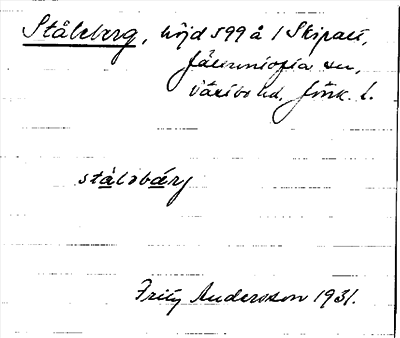 Stålsberg, höjd 599 å 1 Skipaså,
Jälluntofta sn,
Västbo hd. Jönk. l.
stålsbärg
Fritz Andersson 1931.